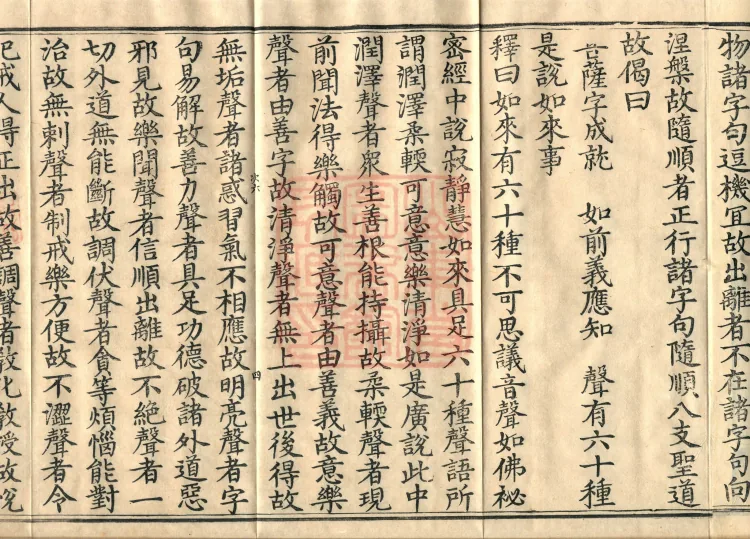 物諸字句逗機宜故出離者不在諸字句向
涅槃故隨順者正行諸字句隨順八支聖道
故偈曰
菩薩字成就　如前義應知　聲有六十種
是說如來事
釋曰如來有六十種不可思議音聲如佛祕
密經中說寂靜慧如來具足六十種聲語所
謂潤澤柔輭可意意樂清淨如是廣說此中
潤澤聲者衆生善根能持攝故柔輭聲者現
前聞法得樂觸故可意聲者由善義故意樂
聲者由善字故清淨聲者無上出世後得故
無垢聲者諸惑習氣不相應故明亮聲者字
句易解故善力聲者具足功德破諸外道惡
邪見故樂聞聲者信順出離故不絕聲者一
切外道無能斷故調伏聲者貪等煩惱能對
治故無刺聲者制戒樂方便故不澀聲者令
犯戒人得正出故善調聲者教化教授故悅